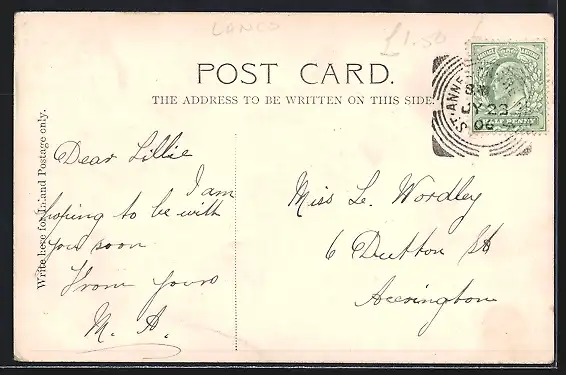 LANCS
£1.50
POST CARD.
THE ADDRESS TO BE WRITTEN ON THIS SIDE.
Write here for Inland Postage only.
ST. ANNES
JY 23
06
HALFPENNY
Dear Lillie
I am
hoping to be with
you soon
From yours
M. A.
Miss L. Wordley
6 Dutton St
Accrington